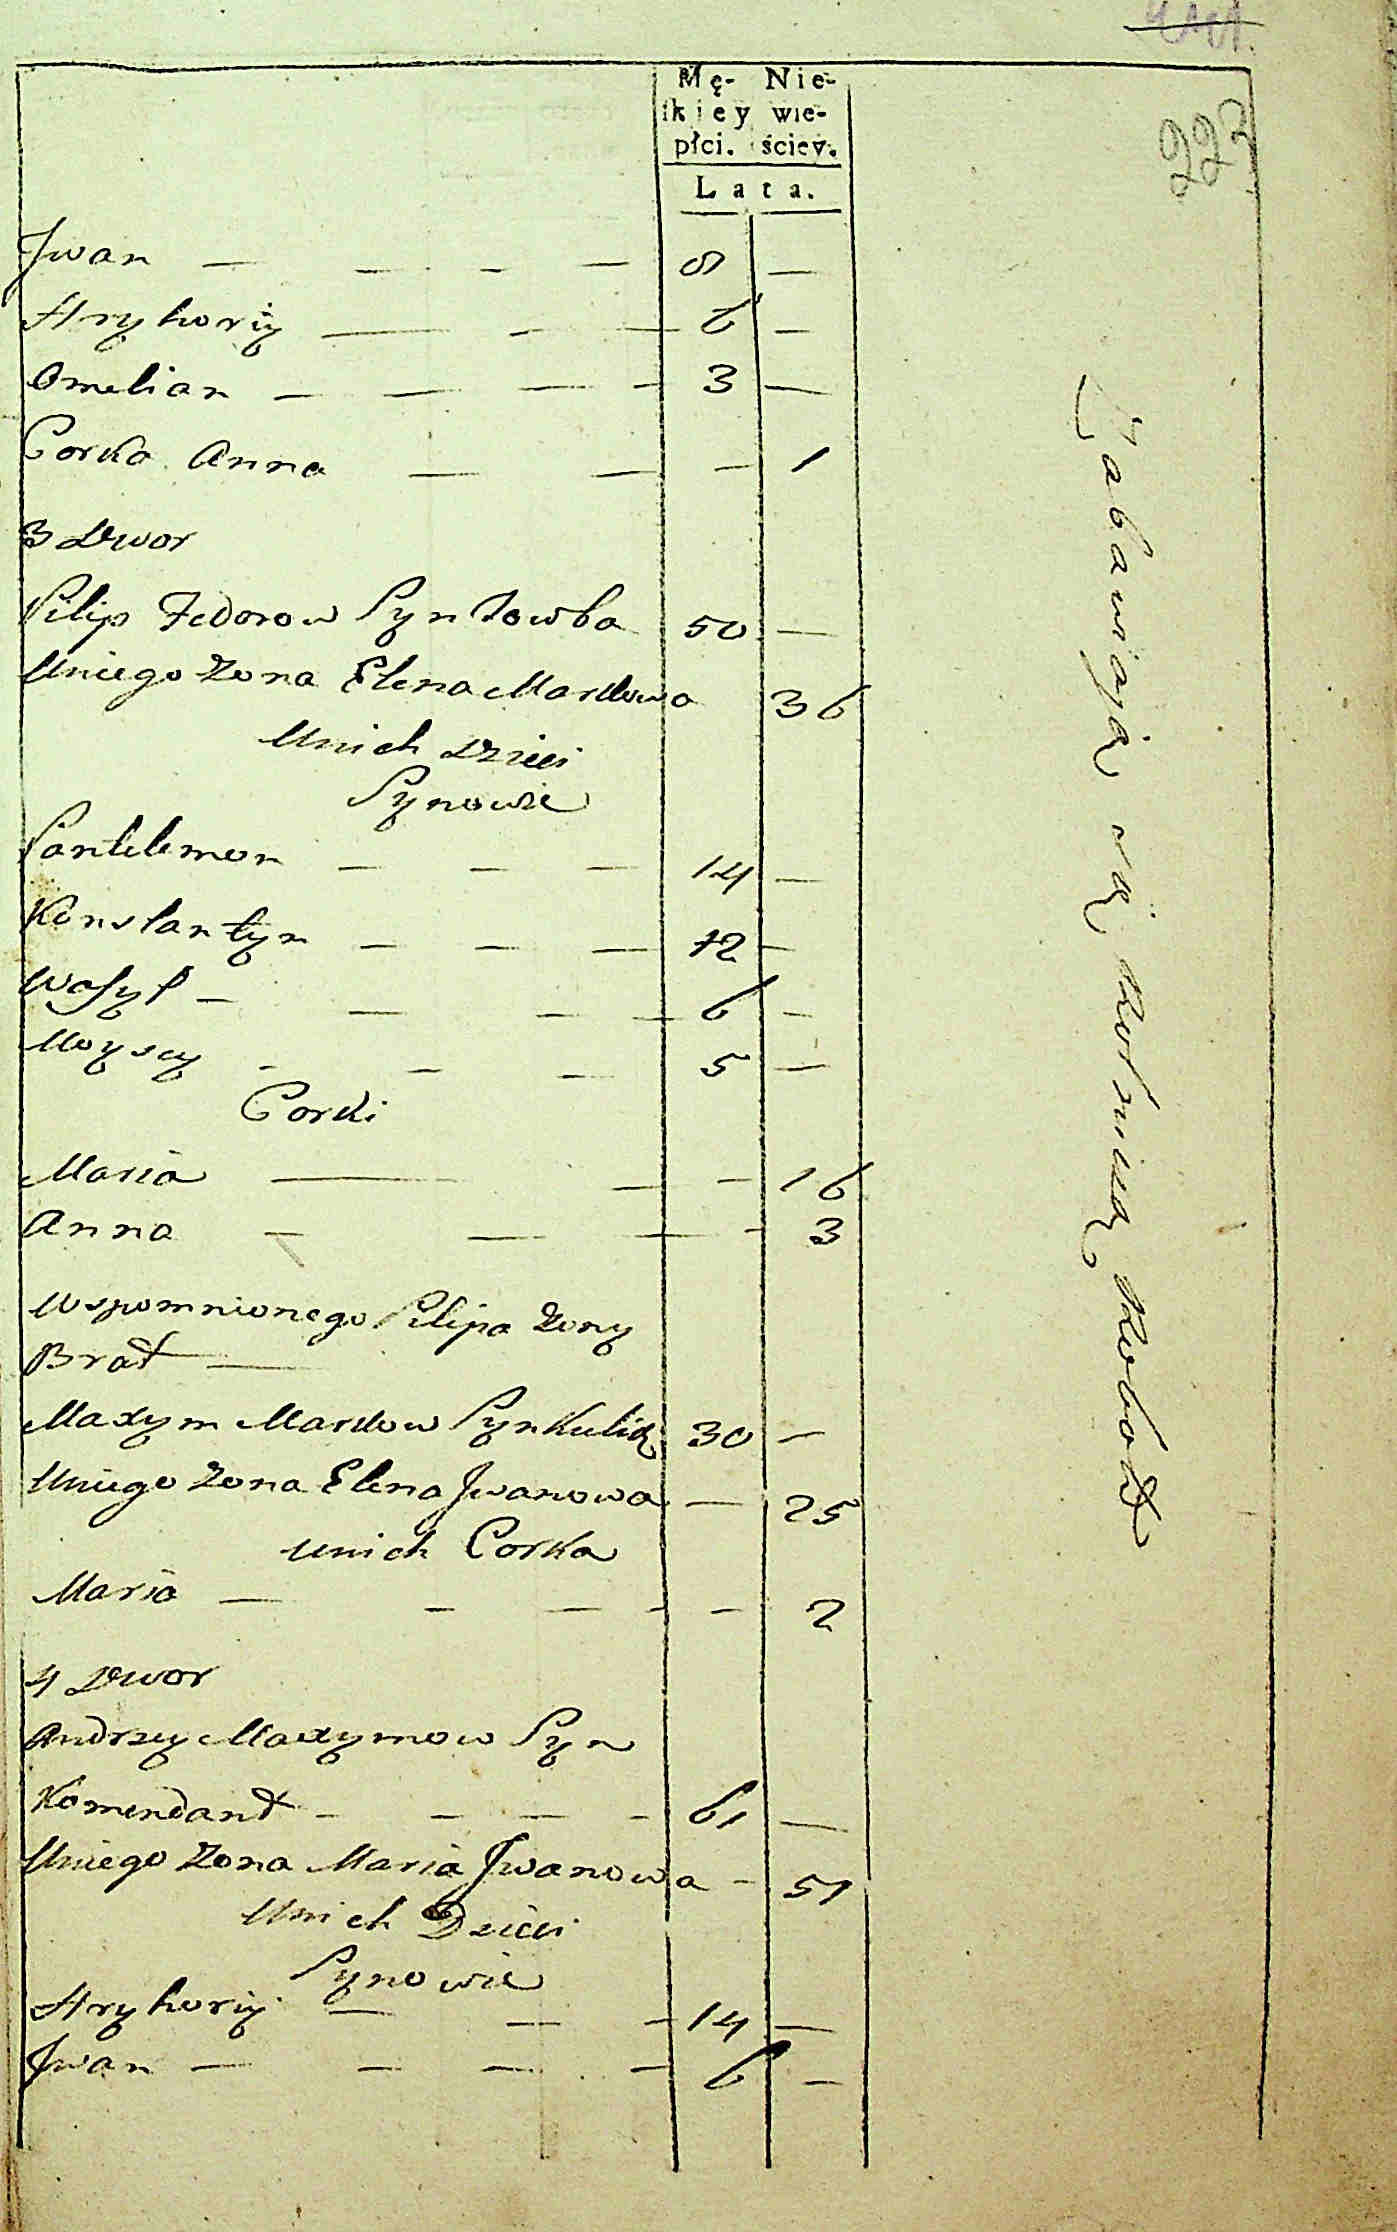 223
Mę- Nie-
skiey wie-
płci. ściey.
Lata.
Jwan — — — — 8 —
Hryhoriy — — — 6 —
Omelian — — — — 3 —
Corka Anna — — — 1
3 Dwor
Pilip Fedorow Syn Dowba 50 —
Uniego Zona Elena Markowa 36
Unich Dzieci
Synowie
Pantelemon — — — 14 —
Konstantyn — — — 12 —
Wasyl — — — — 6 —
Moysey — — — 5 —
Corki
Maria — — — 16
Anna — — — — 3
Wspomnionego Pilipa Zony
Brat —
Maxym Markow Syn Kulik 30 —
Uniego Zona Elena Jwanowa — 25
unich Corka
Maria — — — — — 2
4 Dwor
Andrzey Maxymow Syn
Komendant — — — — 61 —
Uniego Zona Maria Jwanowa — 51
Unich Dzieci
Synowie
Hryhoriy — — — 14 —
Jwan — — — — 6 —
Zabawiają się Rolniczą Robotą